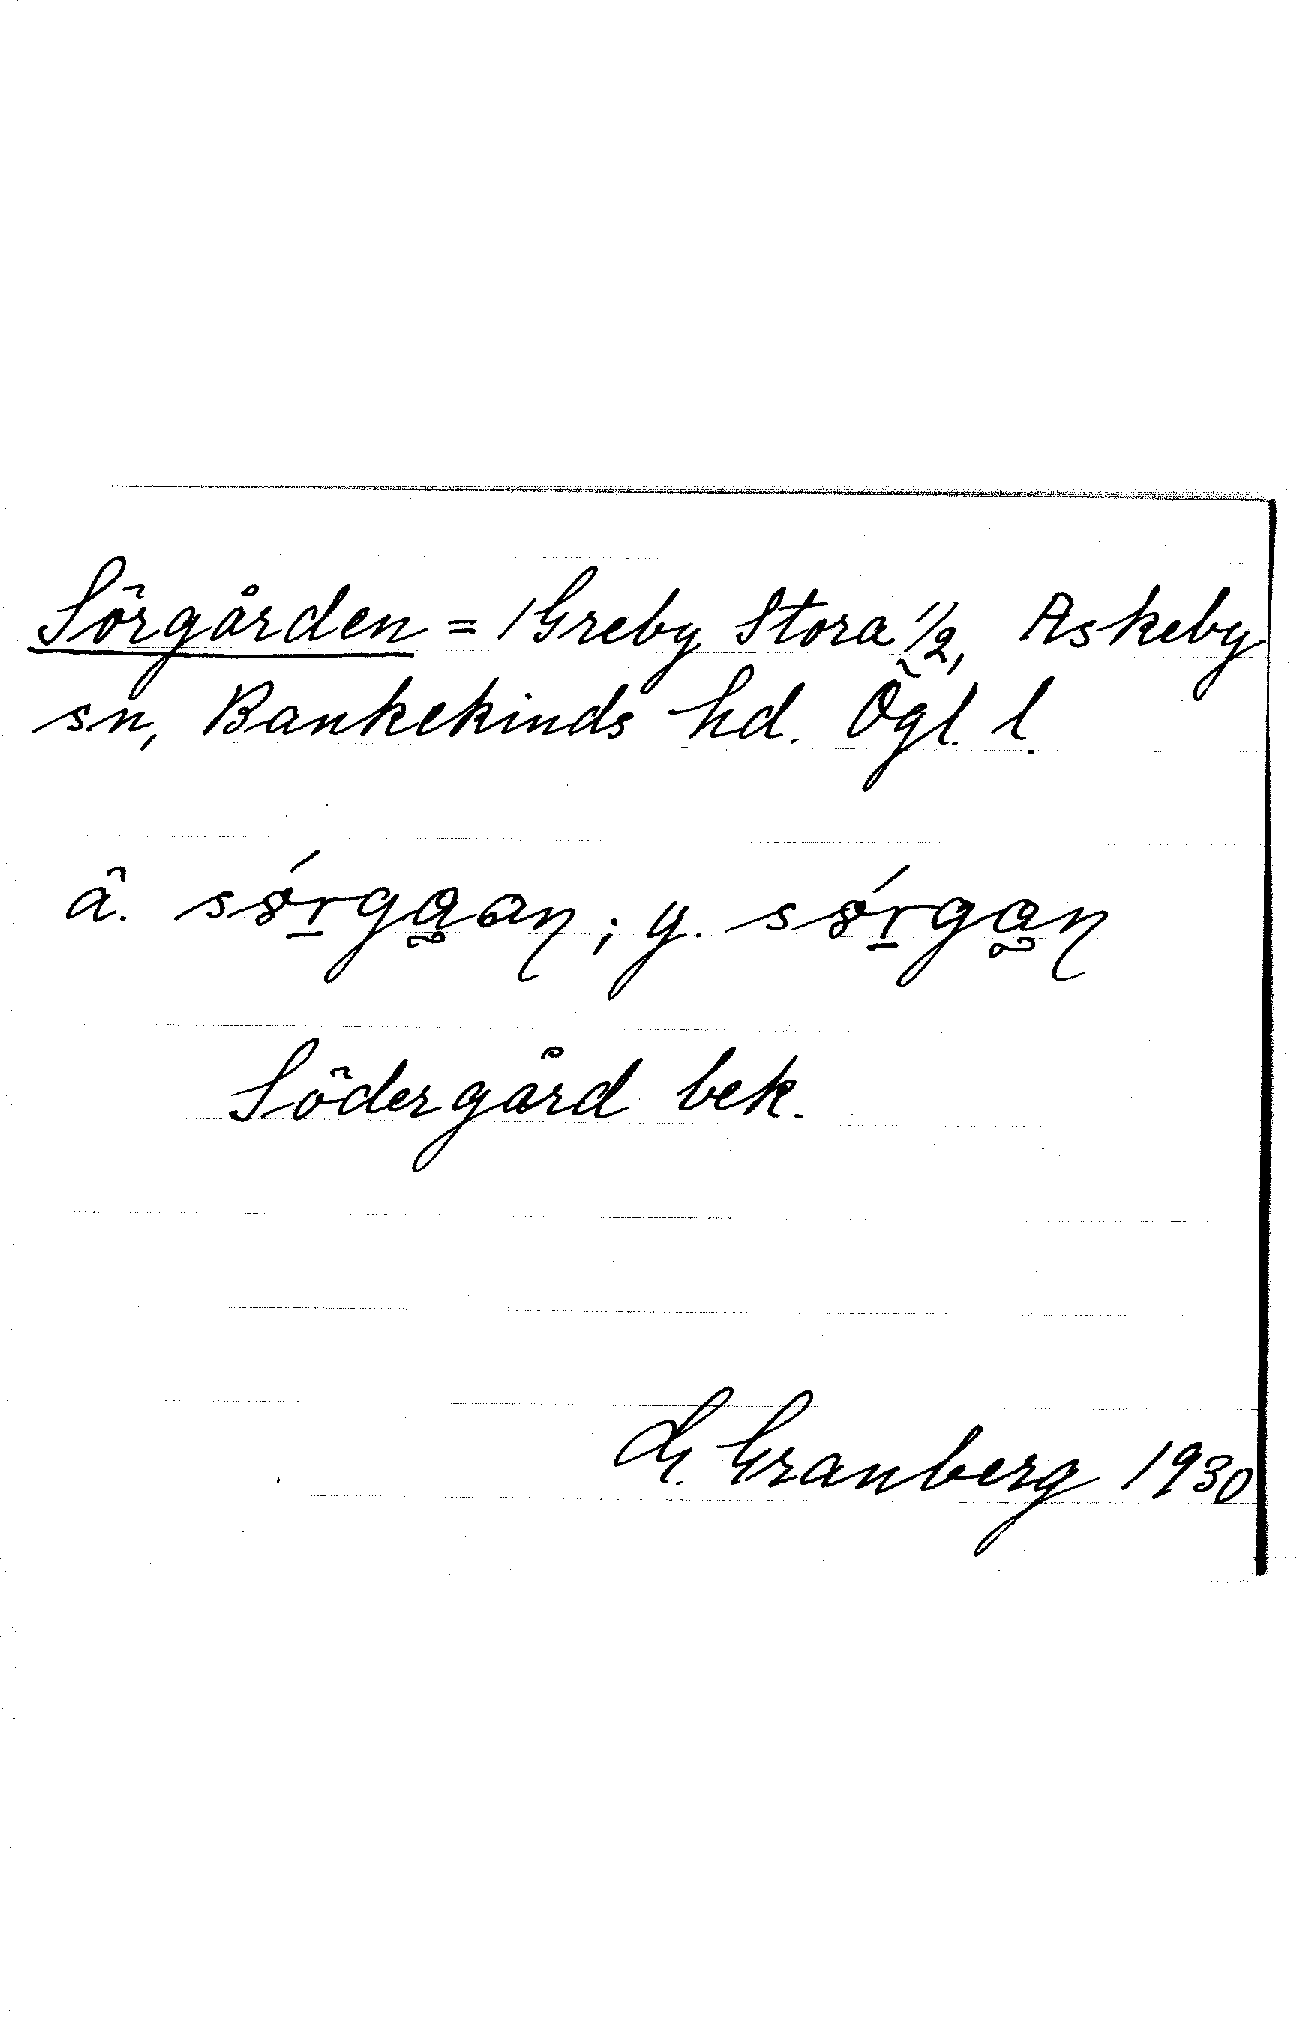 Sörgården = /Greby Stora 1/2, Askeby
sn, Bankekinds hd. Ögl. l.
ä. sǿrgaan; y. sǿrgan
Södergård bek.
G. Granberg 1930